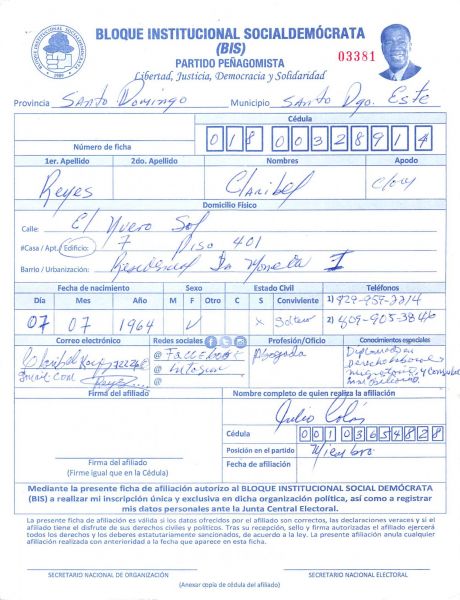 BLOQUE INSTITUCIONAL SOCIALDEMÓCRATA
(BIS)
PARTIDO PEÑAGOMISTA
Libertad, Justicia, Democracia y Solidaridad
03381
Provincia Santo Domingo Municipio Santo Dgo. Este
Cédula
Número de ficha 018 0032891 4
1er. Apellido 2do. Apellido Nombres Apodo
Reyes Claribel
Domicilio Físico
Calle: El Nuevo Sol
#Casa / Apt./ Edificio: 7 Piso 401
Barrio / Urbanización: Residencial La Moneda I
Fecha de nacimiento Sexo Estado Civil Teléfonos
Día Mes Año M F Otro C S Conviviente 1) 829-959-2214
07 07 1964 ✓ X Soltero 2) 809-905-3846
Correo electrónico Redes sociales Profesión/Oficio Conocimientos especiales
@ Facebook Abogada Diplomado en
@ derecho laboral
migratorio y consular
Firma del afiliado Nombre completo de quien realiza la afiliación
Julio Colás
Cédula 001 0365482 8
Posición en el partido Miembro
Firma del afiliado
(Firme igual que en la Cédula)
Fecha de afiliación
Mediante la presente ficha de afiliación autorizo al BLOQUE INSTITUCIONAL SOCIAL DEMÓCRATA
(BIS) a realizar mi inscripción única y exclusiva en dicha organización política, así como a registrar
mis datos personales ante la Junta Central Electoral.
La presente ficha de afiliación es válida si los datos ofrecidos por el afiliado son correctos, las declaraciones veraces y si el
afiliado tiene el disfrute de sus derechos civiles y políticos. Tras su recepción, sello y firma autorizadas el afiliado ejercerá
todos los derechos y los deberes estatutariamente sancionados, de acuerdo a la ley. La presente afiliación anula cualquier
afiliación realizada con anterioridad a la fecha que aparece en esta ficha.
SECRETARIO NACIONAL DE ORGANIZACIÓN SECRETARIO NACIONAL ELECTORAL
(Anexar copia de cédula del afiliado)